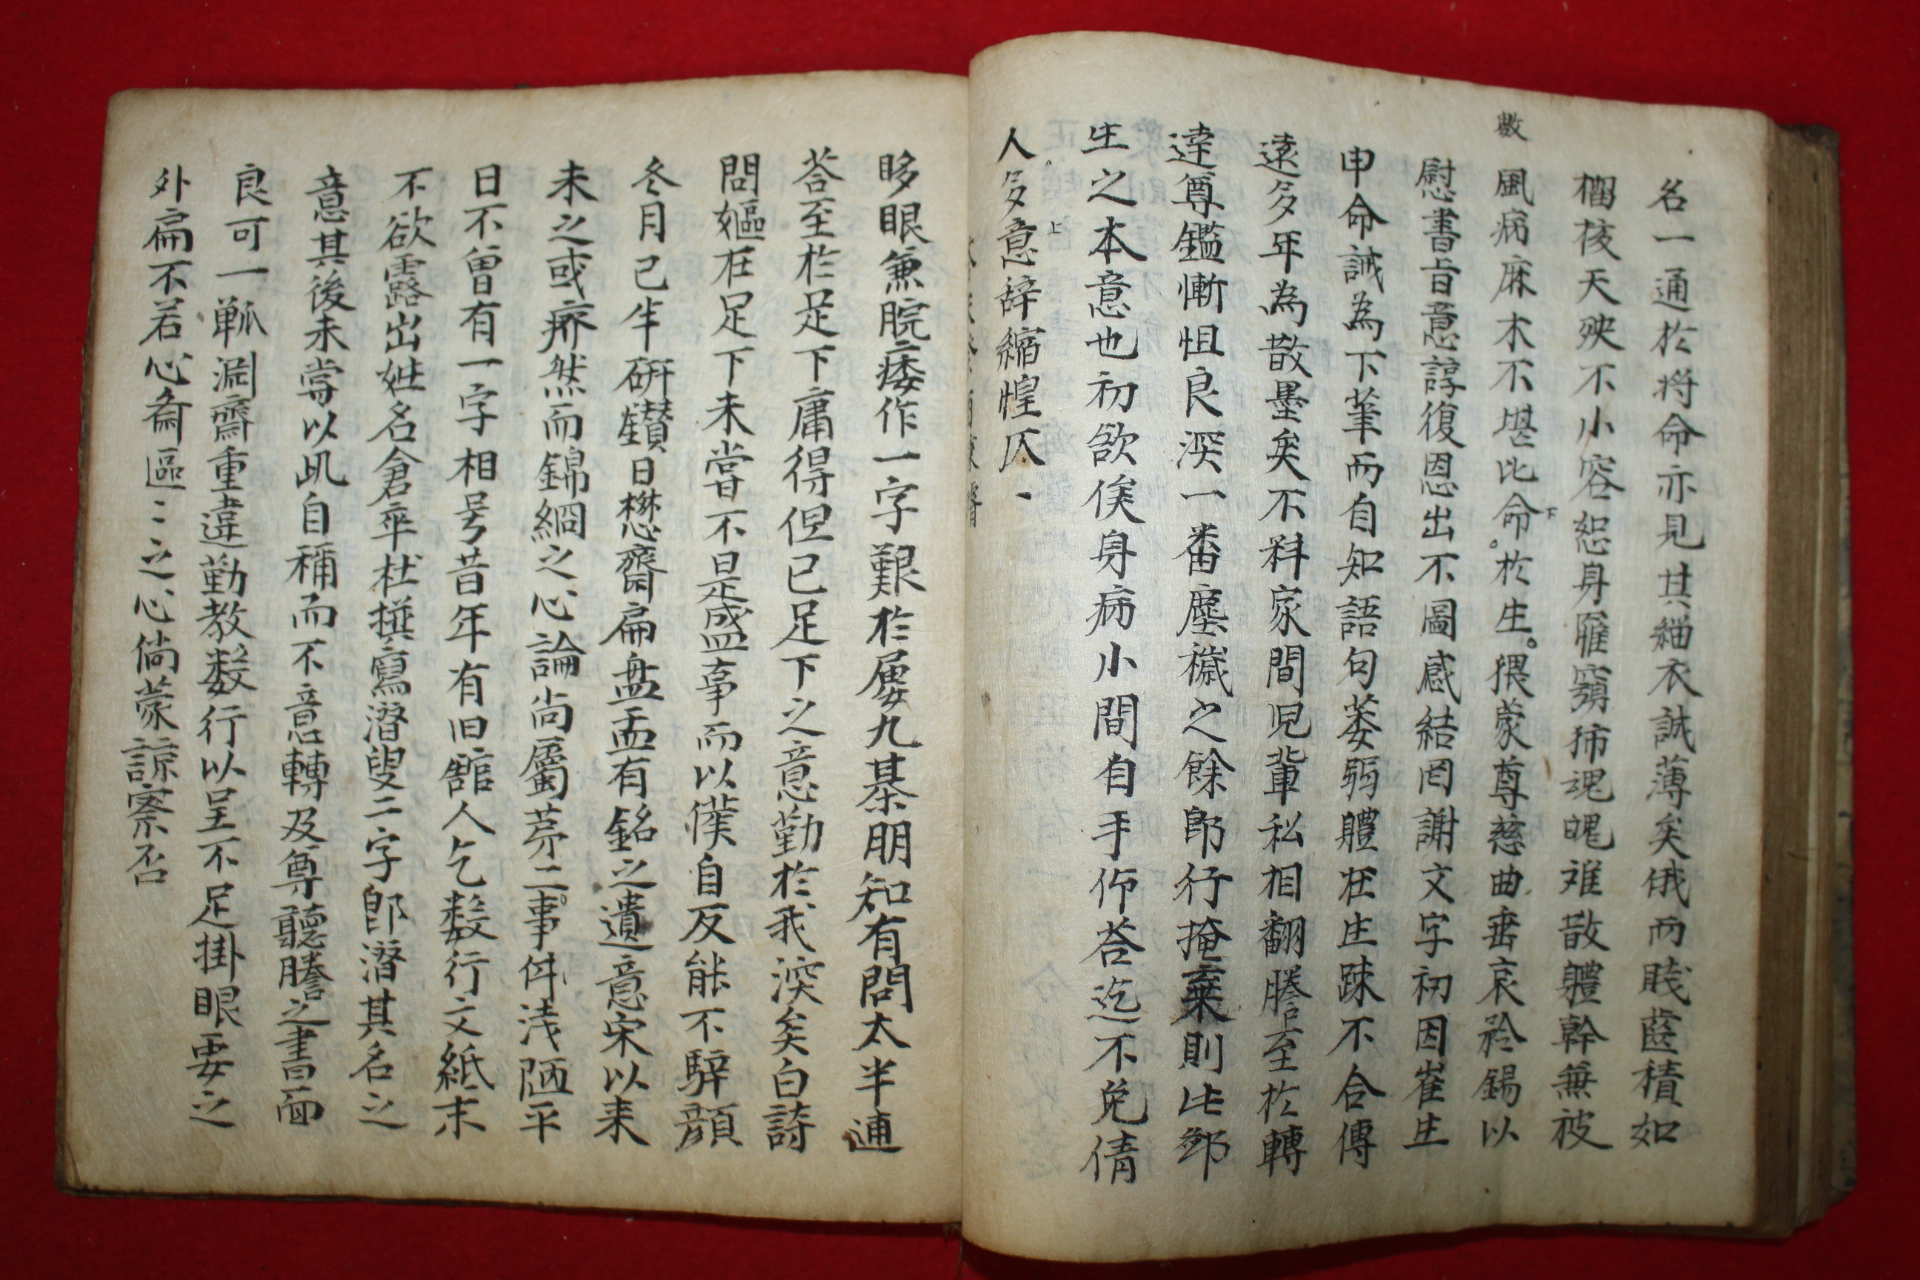 名一通於將命亦見其緇衣誠薄矣俄而賤薩積如
榴核天殃不小容恕身罹窮沛魂魄难散軆幹兼被
數
風病麻木不堪比命下於生猥蒙尊慈曲垂哀矜錫以
慰書旨意諄復恩出不圖感結罔謝文字初因崔生
申命誠為下筆而自知語句萎弱軆在生踈不合傳
遠多年為散墨矣不料家間児輩私相翻謄至於轉
達尊鑑慚怛良深一番塵穢之餘即行掩棄則此鄙
生之本意也初欲俟身病小間自手仰答迄不免倩
人多意上辞縮惶仄
眵眼兼腕痿作一字艱於屢九棊朋知有問太半逋
荅至於足下庸得但已足下之意勤於我深矣白詩
問嫗在足下未嘗不是盛事而以僕自反能不騂顔
冬月己牛研鑚日懋齋扁盤盂有銘之遺意宋以来
未之或疥然而錦綱之心論尚屬苐二事件浅陋平
日不曾有一字相号昔年有旧舘人乞数行文紙末
不欲露出姓名倉卒杜撰寫潛叟二字卽潛其名之
意其後未嘗以此自稱而不意轉及尊聽謄之書面
良可一颦涸齋重違勤教数行以呈不足掛眼要之
外扁不若心齋區〻之心倘蒙諒察否